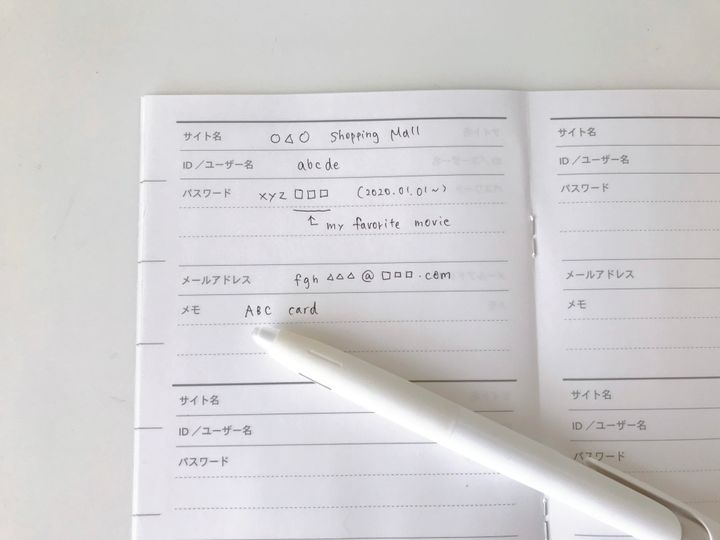 サイト名 ○△○ Shopping Mall
ID／ユーザー名 abcde
パスワード xyz □□□ (2020.01.01~)
↑ my favorite movie
メールアドレス fgh △△△ @ □□□.com
メモ ABC card
サイト名
ID／ユーザー名
パスワード
サイト名
ID／ユーザー名
パスワード
メールアドレス
メモ
サイト名
ID／ユーザー名
パスワード